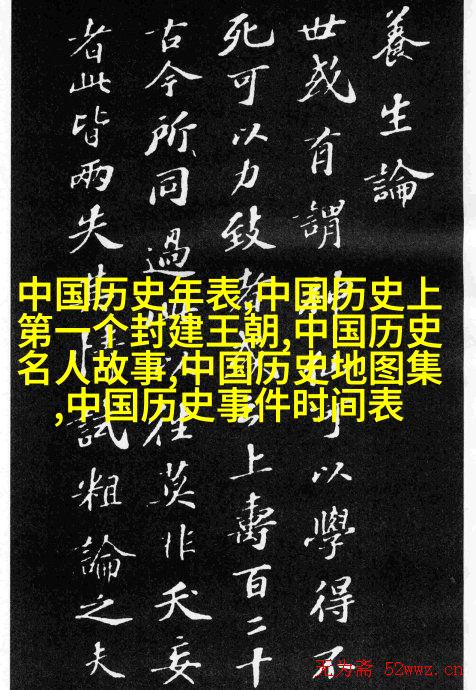 養生論
世或有謂可以學得不
死可以力致者或云上壽百二十
古今所同過此以往莫非夭妄
者此皆兩失其情試粗論之夫
中国历史年表,中国历史上
第一个封建王朝,中国历史
名人故事,中国历史地图集
,中国历史事件时间表
无为斋 52wwz.cn